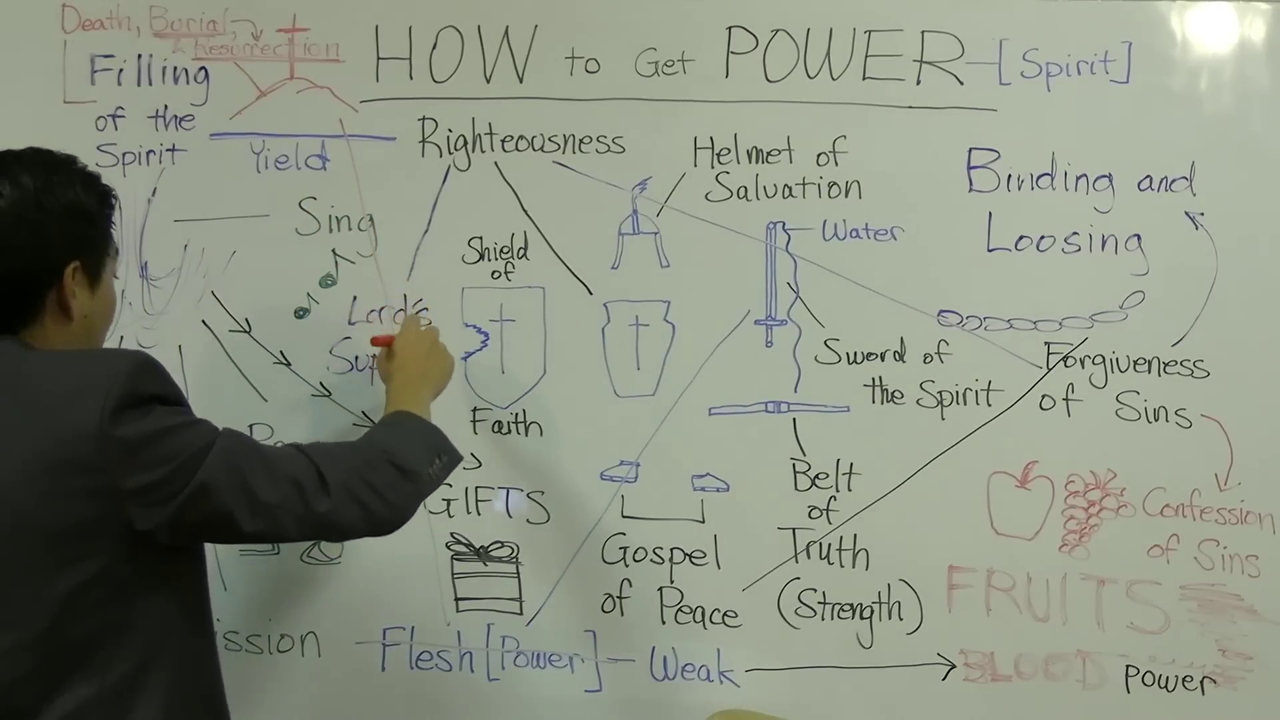 Death, Burial,
& Resurrection
HOW to Get POWER-[Spirit]
Filling
of the
Spirit
Yield
Righteousness
Helmet of
Salvation
Binding and
Loosing
Sing
Water
Shield
of
Faith
Lord's
Sword of
the Spirit
Forgiveness
of Sins
Belt
of
Truth
(Strength)
Confession
of Sins
GIFTS
Gospel
of Peace
FRUITS
ission
Flesh [Power] - Weak
BLOOD Power